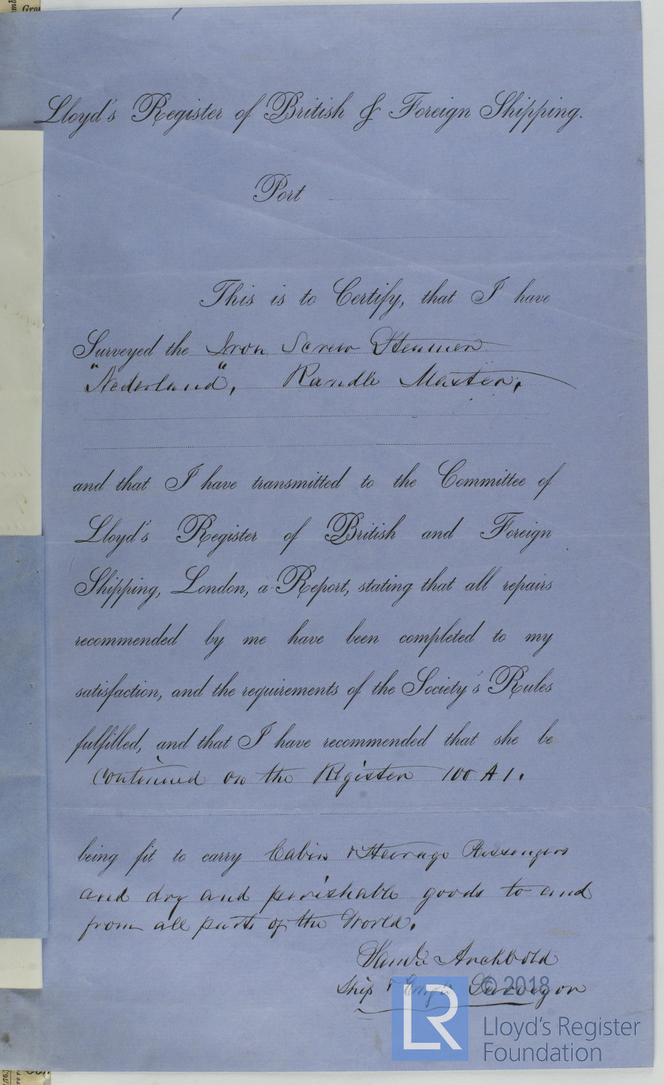 Lloyd's Register of British & Foreign Shipping.
Port
This is to Certify, that I have
Surveyed the Iron Screw Steamer
"Nederland", Randle Master,
and that I have transmitted to the Committee of
Lloyd's Register of British and Foreign
Shipping, London, a Report, stating that all repairs
recommended by me have been completed to my
satisfaction, and the requirements of the Society's Rules
fulfilled, and that I have recommended that she be
continued on the Register 100 A 1.
being fit to carry Cabin & Steerage Passengers
and dry and perishable goods to and
from all parts of the World.
Archbold
Ship & Surveyor
© 2018
LR
Lloyd's Register
Foundation